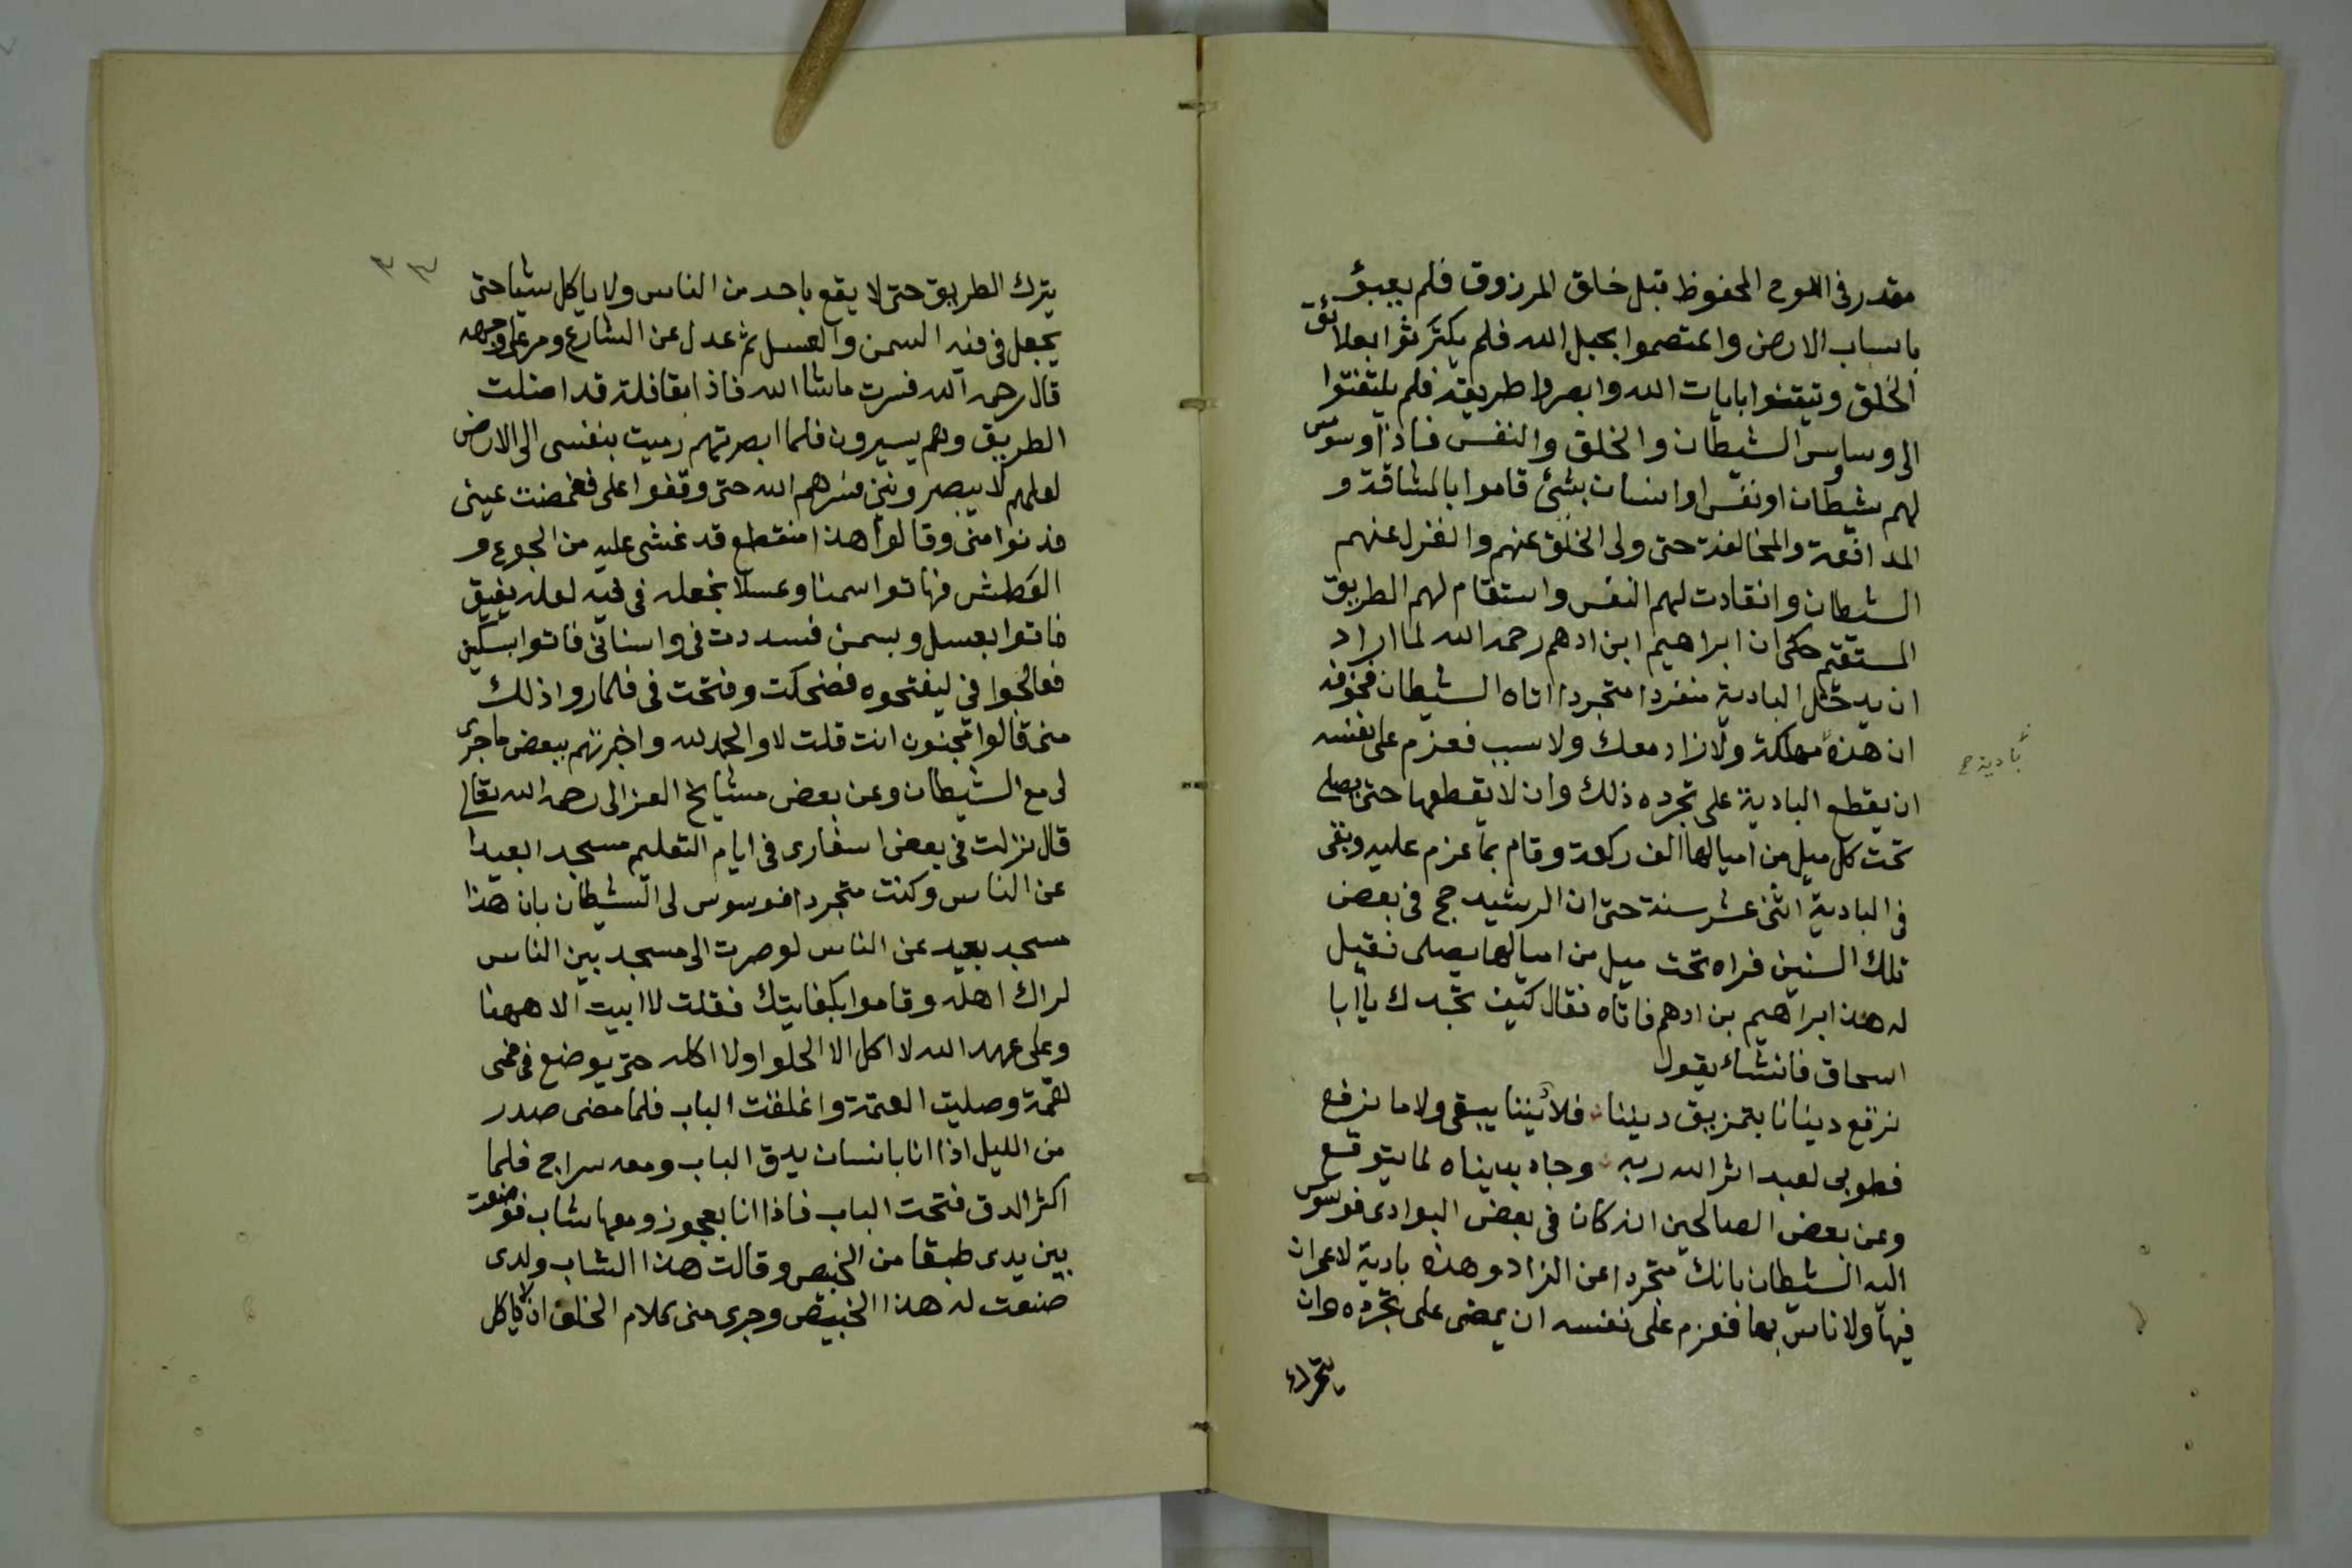 مقدر فى اللوح المحفوظ قبل خلق المرزوق فلم يعبؤ
باسباب الارض واعتصموا بحبل الله فلم يكترثوا بعلائق
الخلق وتيقنوا بايات الله وابصروا طريقه فلم يلتفتوا
الى وساوس الشيطان والخلق والنفس فاذا وسوس
لهم شيطان او نفس او انسان بشئ قاموا بالمشاقة و
المدافعة والمخالفة حتى ولى الخلق عنهم وانعزل عنهم
الشيطان وانقادت لهم النفس واستقام لهم الطريق
المستقيم حكى ان ابراهيم ابن ادهم رحمه الله لما اراد
ان يدخل البادية منفردا متجردا اتاه الشيطان فخوفه
ان هذه مهلكة ولا زاد معك ولا سبب فعزم على نفسه
بادية صح
ان يقطع البادية على تجرده ذلك وان لا يقطعها حتى يصلى
تحت كل ميل من اميالها الف ركعة وقام بما عزم عليه وبقى
فى البادية اثنى عشر سنة حتى ان الرشيد حج فى بعض
تلك السنين فراه تحت ميل من اميالها يصلى فقيل
له هذا ابراهيم بن ادهم فاتاه فقال كيف تجدك يا ابا
اسحاق فانشاء يقول
نرقع دينانا بتمزيق ديننا فلا ديننا يبقى ولا ما نرقع
فطوبى لعبد اثر الله ربه وجاد بديناه لما يتوقع
وعن بعض الصالحين انه كان فى بعض البوادى فوسوس
اليه الشيطان بانك متجردا عن الزاد وهذه بادية لا عمران
فيها ولا ناس بها فعزم على نفسه ان يمضى على تجرده وان
يترك
٣٣
يترك الطريق حتى لا يقع باحد من الناس ولا ياكل شيا حتى
يجعل فى فيه السمن والعسل ثم عدل عن الشارع ومر على وجهه
قال رحمه الله فسرت ماشا الله فاذا بقافلة قد اضلت
الطريق وهم يسيرون فلما ابصرتهم رميت بنفسى الى الارض
لعلهم لا يبصروننى فسرهم الله حتى وقفوا على فغمضت عينى
فدنوا منى وقالوا هذا منقطع قد غشى عليه من الجوع و
العطش فهاتوا سمنا وعسلا نجعله فى فيه لعله يفيق
فاتوا بعسل وبسمن فسددت فى واسنانى فاتوا بسكين
فعالجوا فى ليفتحوه فضحكت وفتحت فى فلما روا ذلك
منى قالوا مجنون انت قلت لا والحمد لله واخبرتهم ببعض ما جرى
لى مع الشيطان وعن بعض مشايخ الغزالى رحمه الله تعالى
قال نزلت فى بعض اسفارى فى ايام التعليم مسجدا بعيدا
عن الناس وكنت متجردا فوسوس لى الشيطان بان هذا
مسجد بعيد عن الناس لو صرت الى مسجد بين الناس
لراك اهله وقاموا بكفايتك فقلت لا ابيت الا ههنا
وعلى عهد الله لا اكل الا الحلوا ولا اكله حتى يوضع فى فمى
لقمة وصليت العتمة واغلقت الباب فلما مضى صدر
من الليل اذا انا بانسان يدق الباب ومعه سراج فلما
اكثر الدق فتحت الباب فاذا انا بعجوز ومعها شاب فوضعت
بين يدى طبقا من الخبيص وقالت هذا الشاب ولدى
صنعت له هذا الخبيص وجرى منى كلام الخلف ان لا ياكل